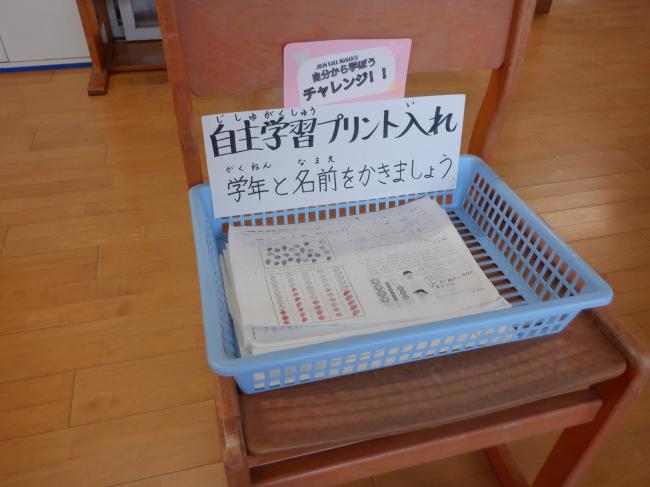 JIBUN KARA MANABOU
自分から学ぼう
チャレンジ！！
じしゅがくしゅう い
自主学習プリント入れ
がくねん なまえ
学年と名前をかきましょう